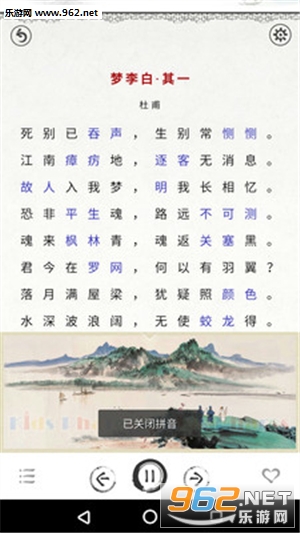 乐游网
www.962.net
梦李白·其一
杜甫
死别已吞声，生别常恻恻。
江南瘴疠地，逐客无消息。
故人入我梦，明我长相忆。
恐非平生魂，路远不可测。
魂来枫林青，魂返关塞黑。
君今在罗网，何以有羽翼？
落月满屋梁，犹疑照颜色。
水深波浪阔，无使蛟龙得。
已关闭拼音
962.NET
乐游网